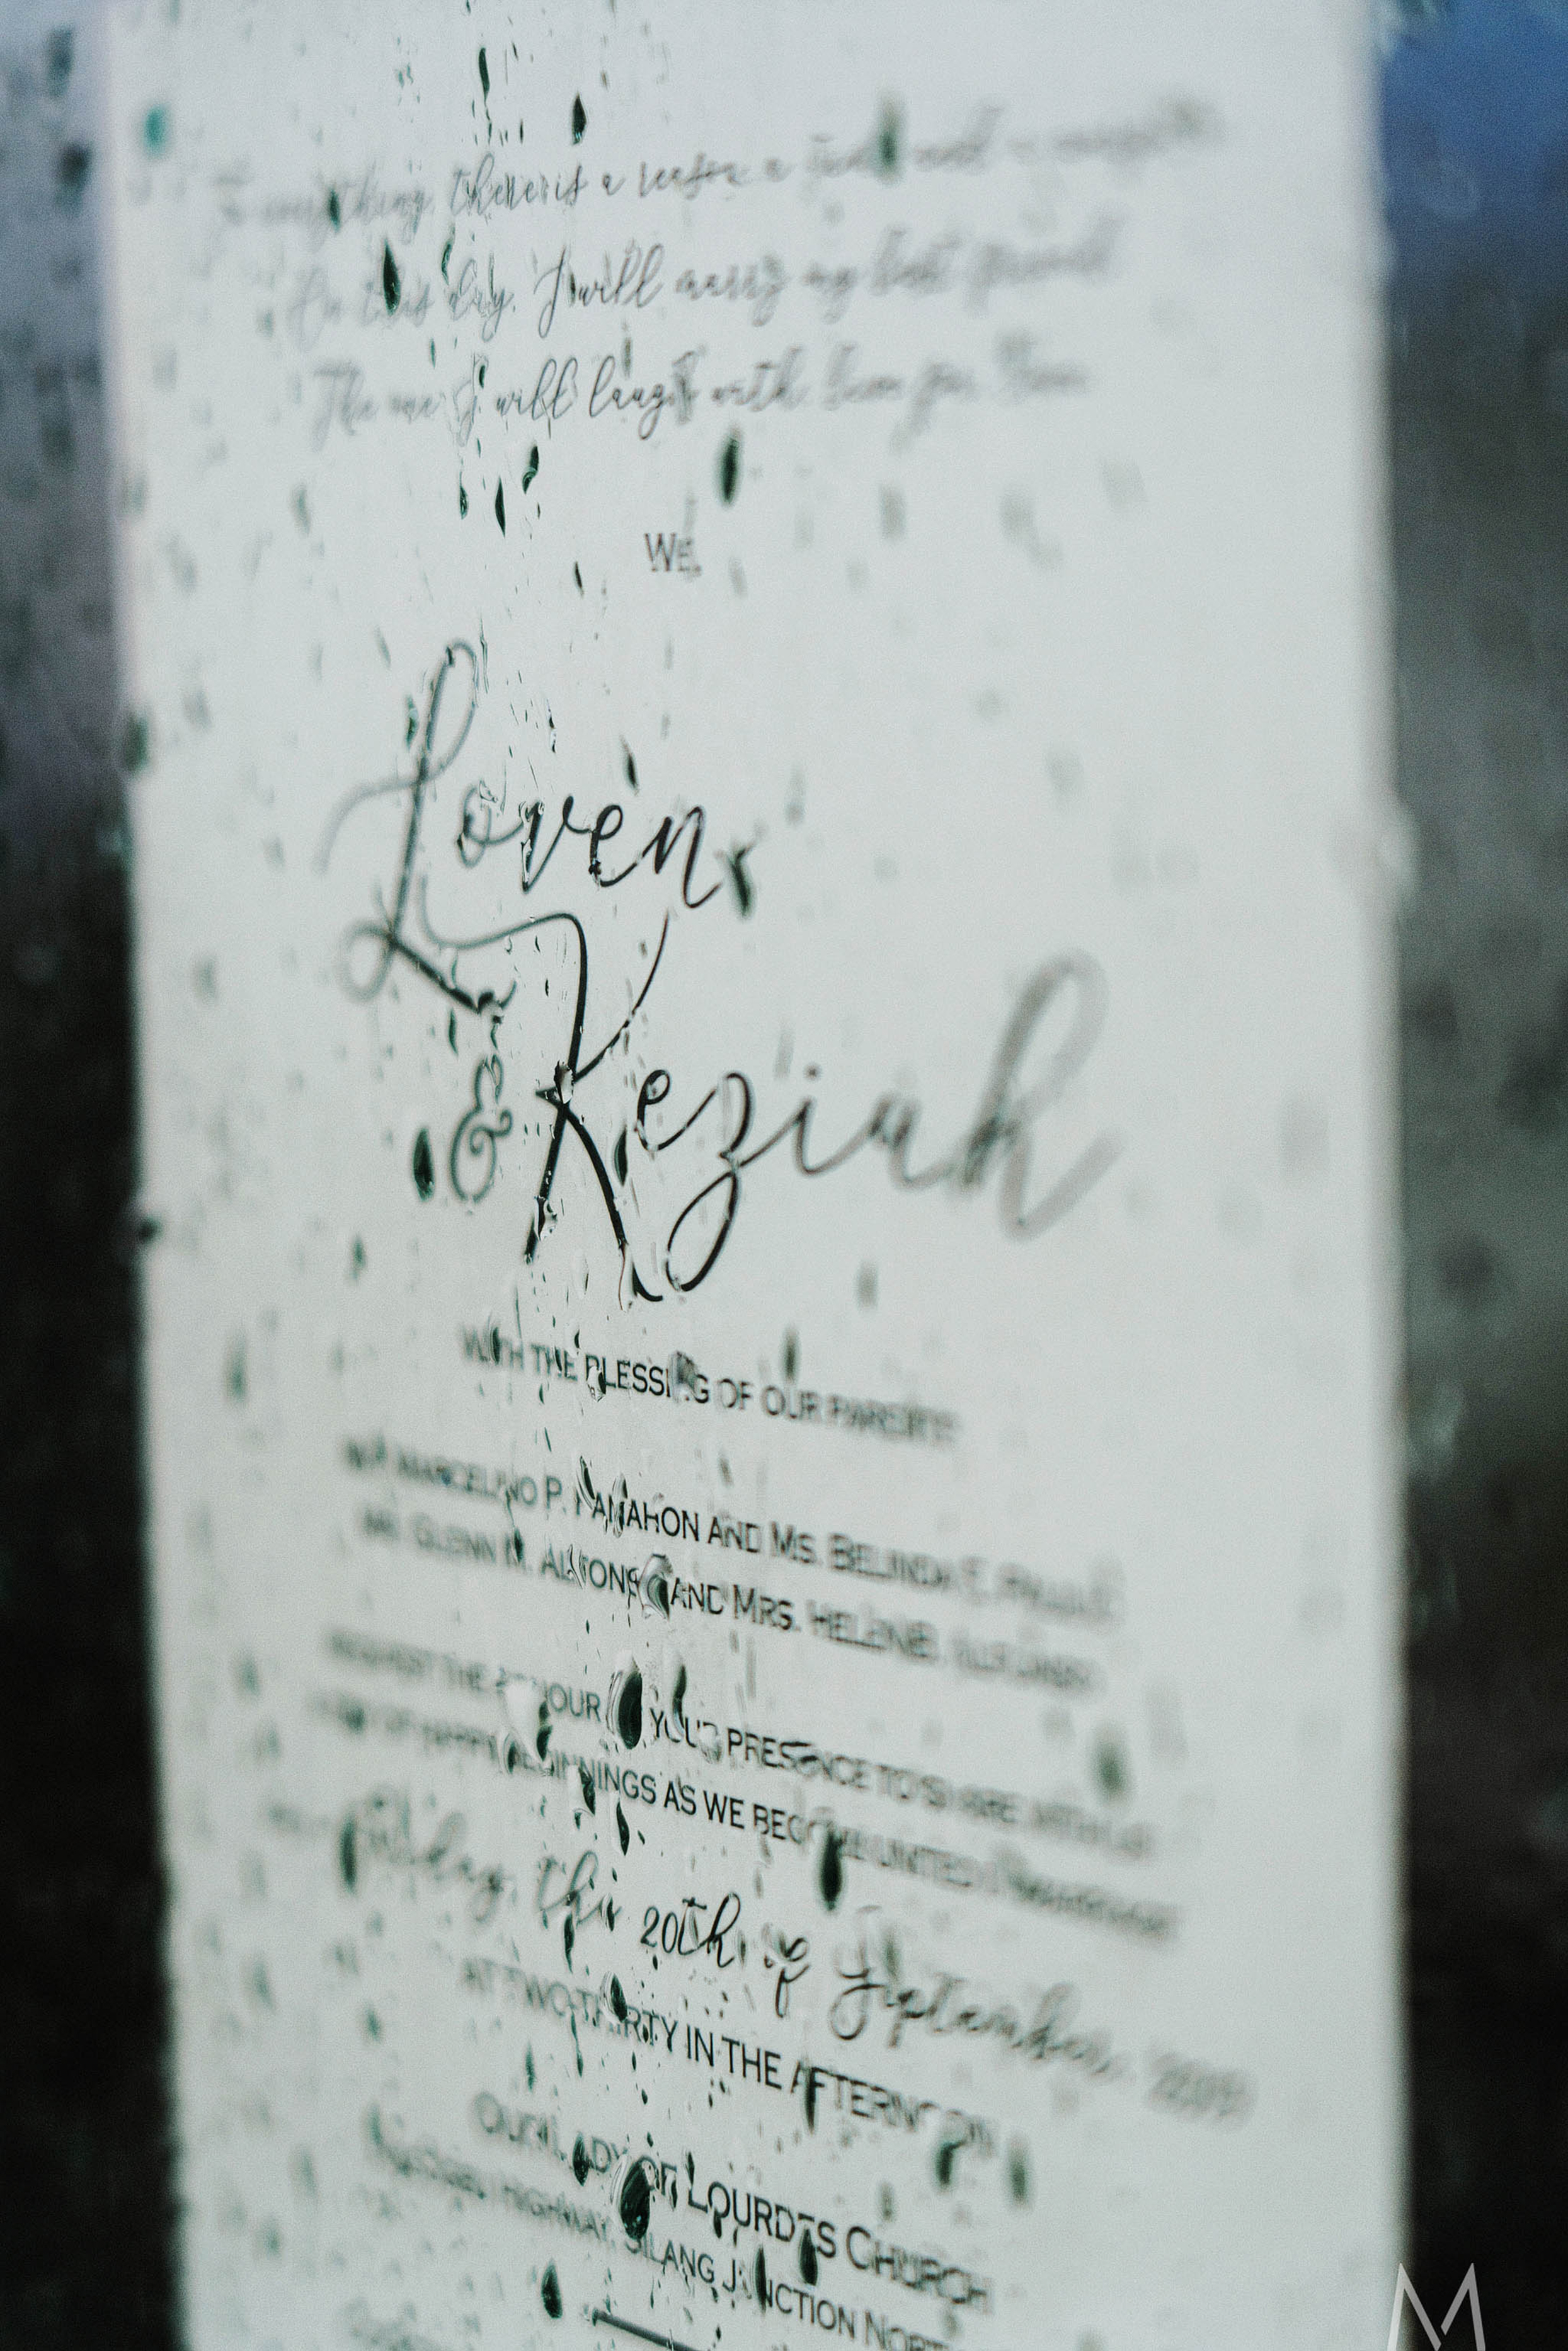 To everything, there is a reason, a
On this day, I will marry my best friend
The one I will laugh with, live for, love
WE,
Loven
& Keziah
WITH THE BLESSING OF OUR PARENTS
MARCELINO P. AND MS. BELINDA
MR. GLENN M. AND MRS. HELEN
REQUEST THE HONOUR OF YOUR PRESENCE TO SHARE WITH US
OF HAPPY BEGINNINGS AS WE BECOME UNITED IN MARRIAGE
Friday, the 20th of September, 2019
AT TWO-THIRTY IN THE AFTERNOON
OUR LADY OF LOURDES CHURCH
HIGHWAY, SILANG JUNCTION NORTH
M